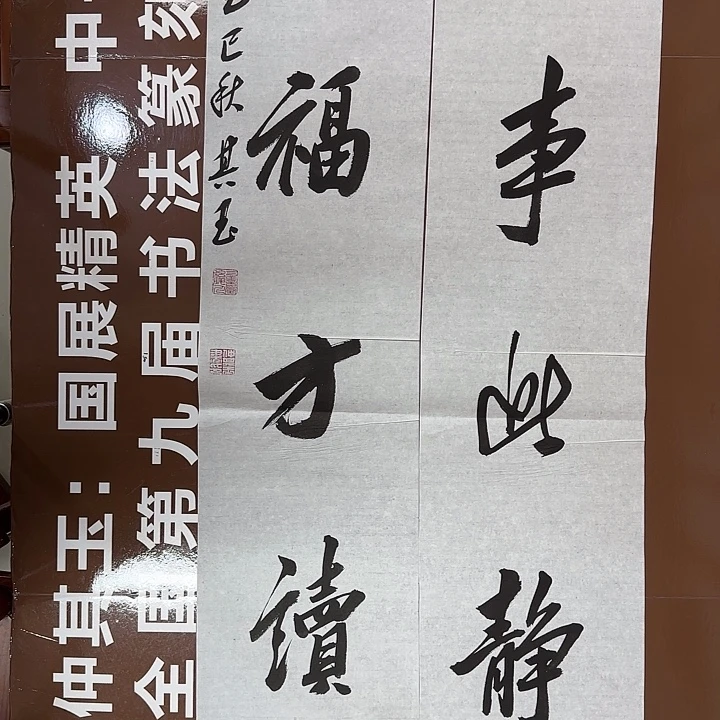 事此静
福方讀
巳秋其玉
仲其玉：国展精英 中
全国第九届书法篆刻